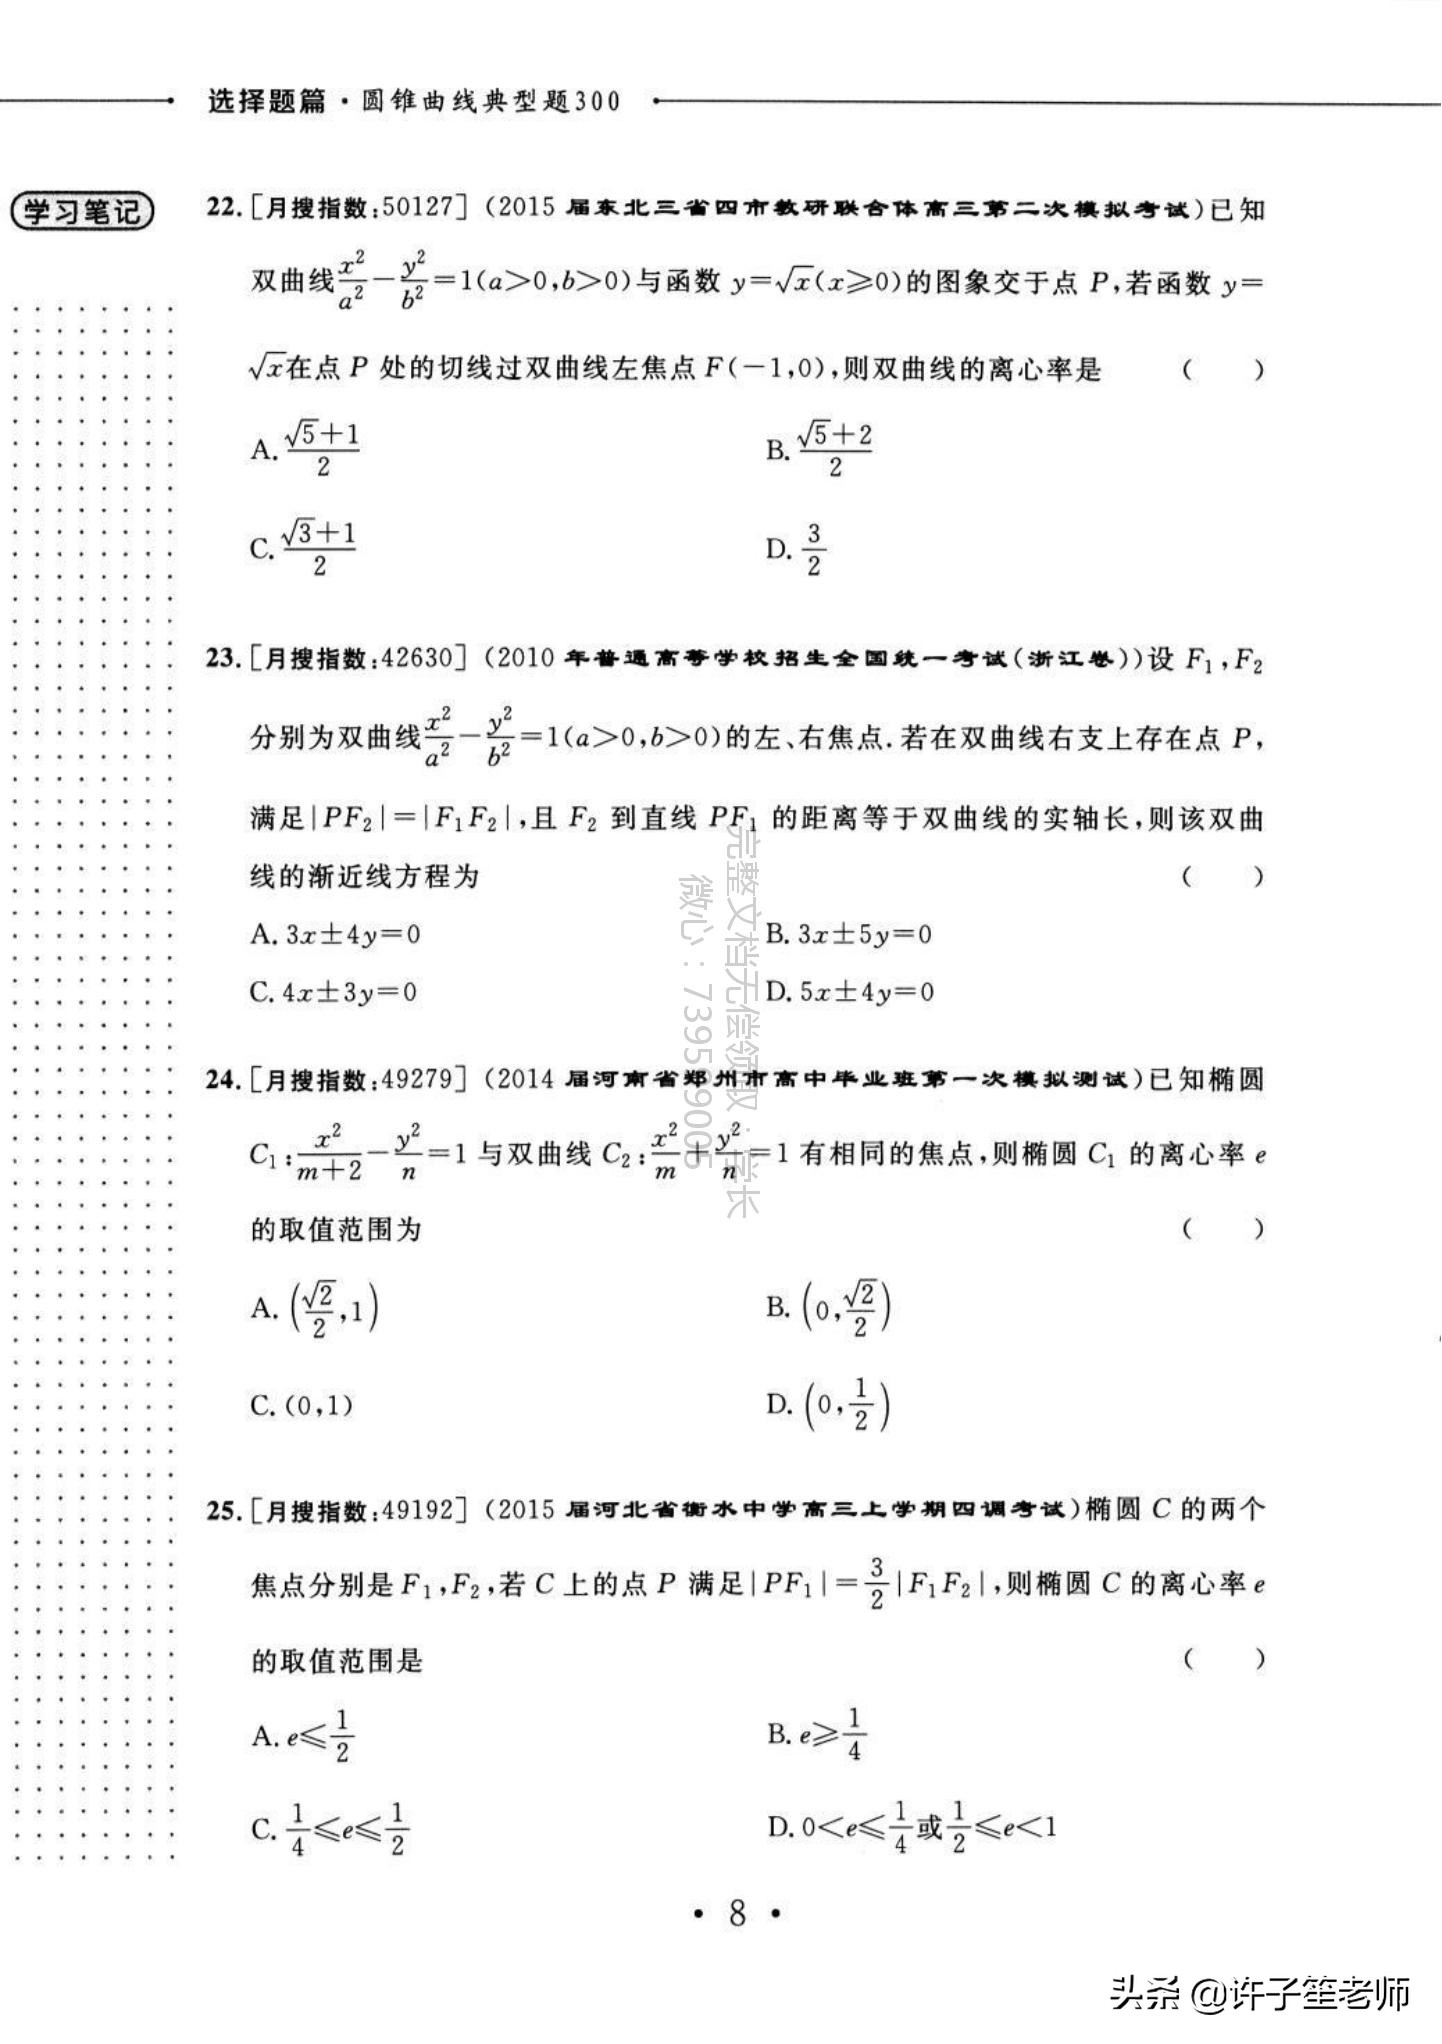 选择题篇·圆锥曲线典型题300
学习笔记
22.[月搜指数:50127](2015届东北三省四市教研联合体高三第二次模拟考试)已知
双曲线x²/a²-y²/b²=1(a>0,b>0)与函数 y=√x(x≥0)的图象交于点 P,若函数 y=
√x在点 P 处的切线过双曲线左焦点 F(-1,0),则双曲线的离心率是 ( )
A. (√5+1)/2 B. (√5+2)/2
C. (√3+1)/2 D. 3/2
23.[月搜指数:42630](2010年普通高等学校招生全国统一考试(浙江卷))设 F₁,F₂
分别为双曲线x²/a²-y²/b²=1(a>0,b>0)的左、右焦点.若在双曲线右支上存在点 P,
满足|PF₂|=|F₁F₂|,且 F₂ 到直线 PF₁ 的距离等于双曲线的实轴长,则该双曲
线的渐近线方程为 ( )
A. 3x±4y=0 B. 3x±5y=0
C. 4x±3y=0 D. 5x±4y=0
24.[月搜指数:49279](2014届河南省郑州市高中毕业班第一次模拟测试)已知椭圆
C₁:x²/(m+2)-y²/n=1 与双曲线 C₂:x²/m+y²/n=1 有相同的焦点,则椭圆 C₁ 的离心率 e
的取值范围为 ( )
A. (√2/2,1) B. (0,√2/2)
C. (0,1) D. (0,1/2)
25.[月搜指数:49192](2015届河北省衡水中学高三上学期四调考试)椭圆 C 的两个
焦点分别是 F₁,F₂,若 C 上的点 P 满足|PF₁|=3/2|F₁F₂|,则椭圆 C 的离心率 e
的取值范围是 ( )
A. e≤1/2 B. e≥1/4
C. 1/4≤e≤1/2 D. 0<e≤1/4或1/2≤e<1
·8·
完整文档无偿领取:学长
头条 @许子笙老师